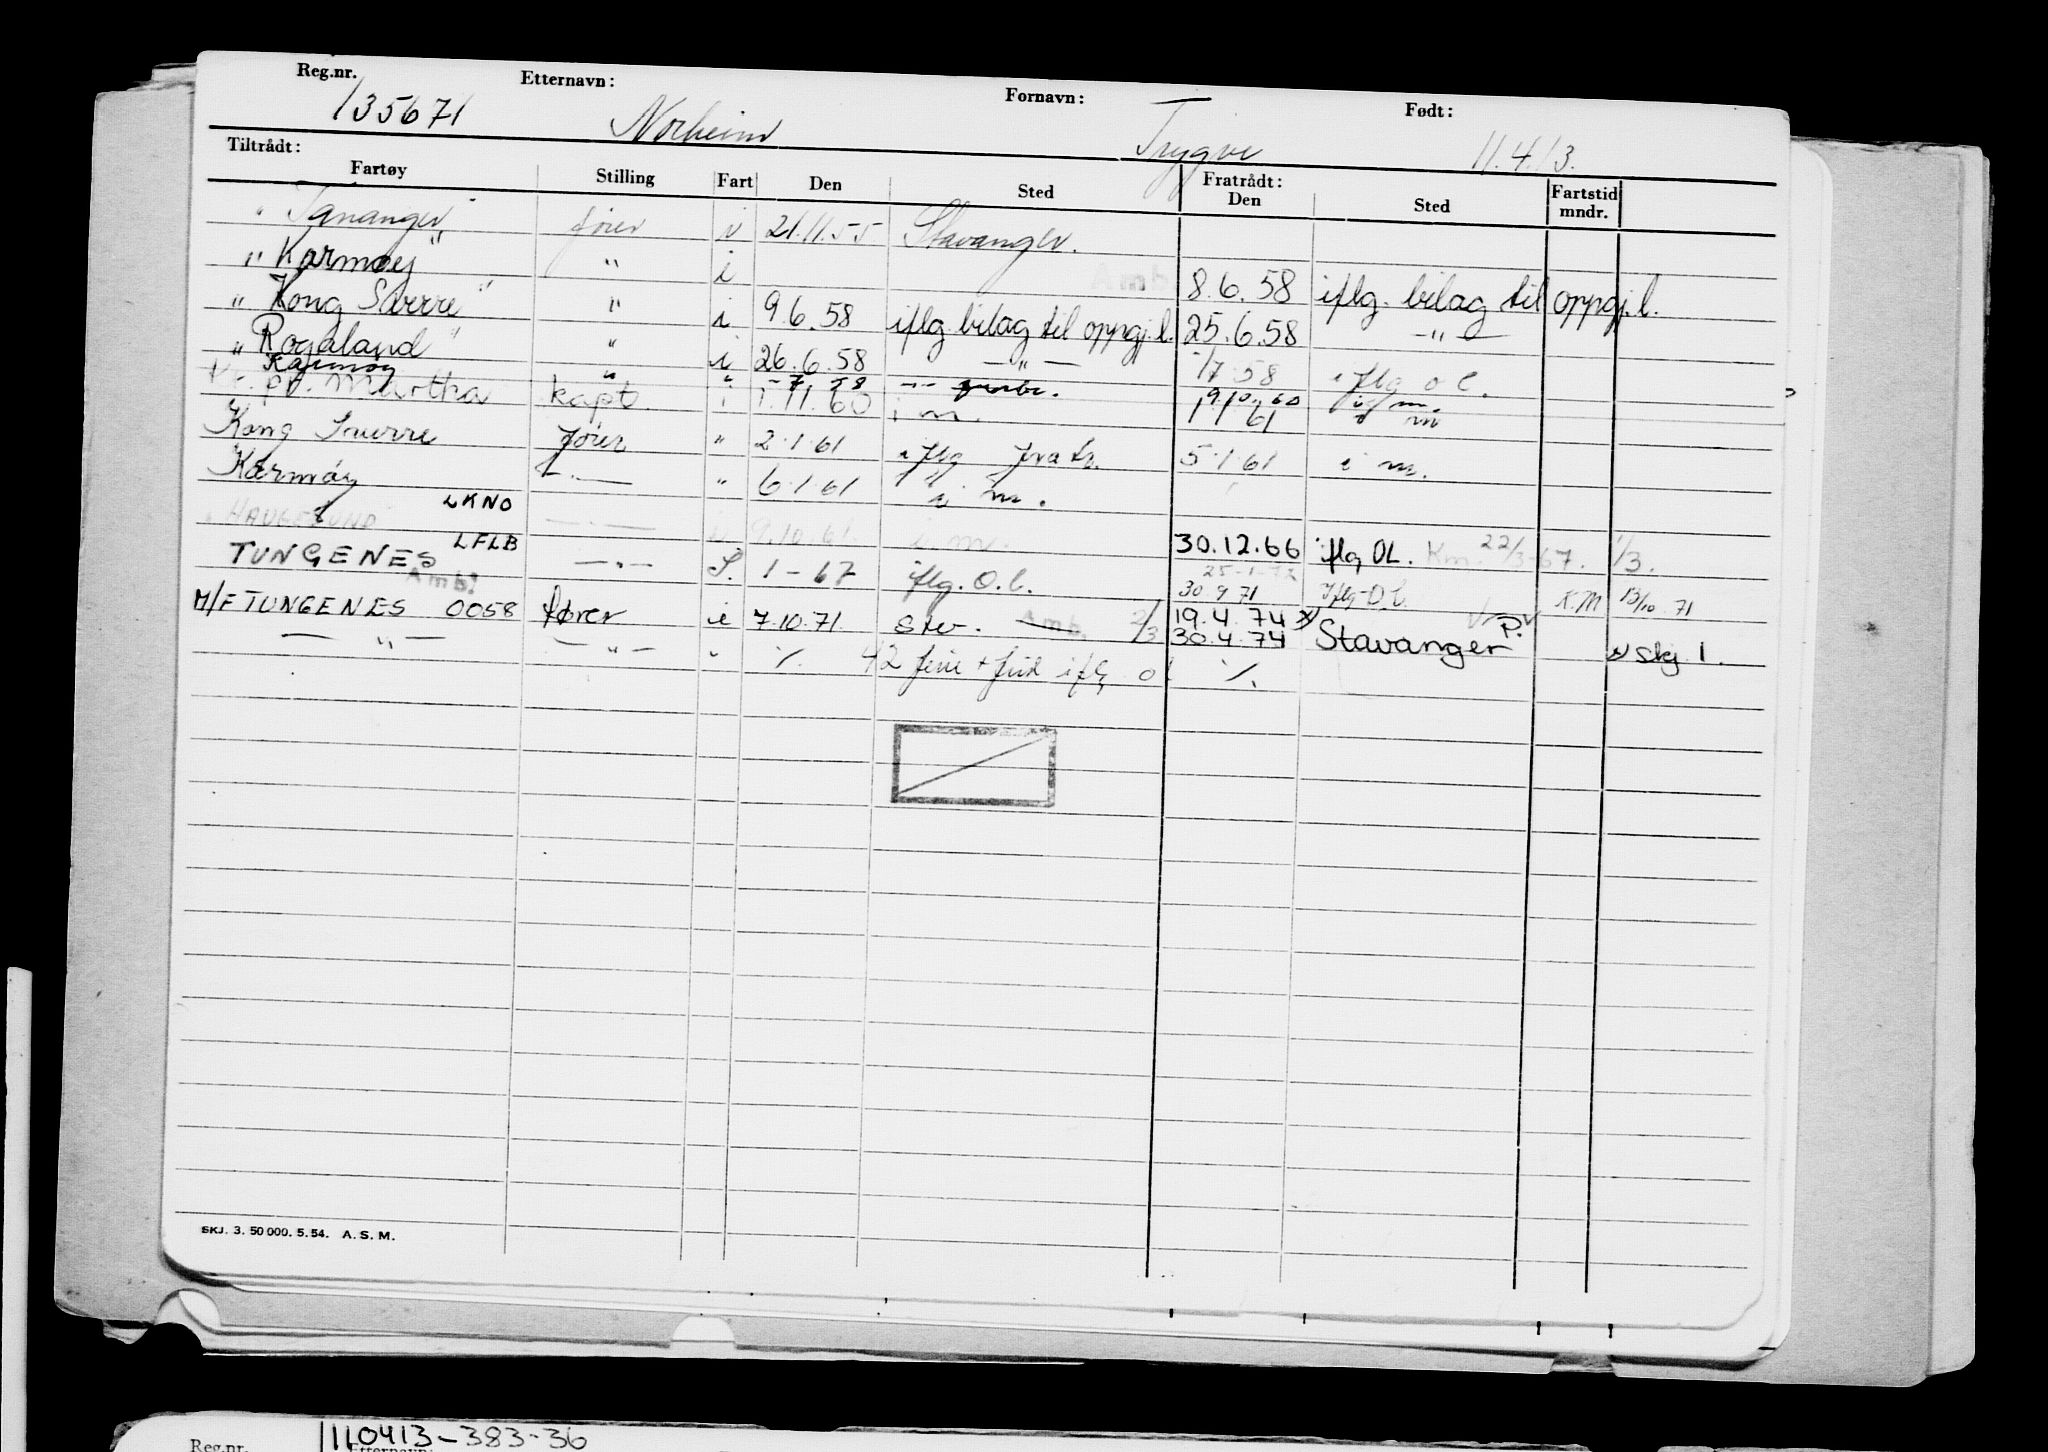 Reg.nr. Etternavn: Fornavn: Født:
135671 Norheim Trygve 11.4.13.
Tiltrådt: Fratrådt:
Fartøy Stilling Fart Den Sted Den Sted Fartstid mndr.
"Tananger" fører i 21.11.55 Stavanger.
"Karmøy" " i Amb. 8.6.58 iflg. bilag til oppgj.l.
"Kong Sverre" " i 9.6.58 iflg bilag til oppgj.l. 25.6.58 — " —
"Rogaland" " i 26.6.58 — " — 1/7 58 iflg o l.
Karmøy " " 1-7 58 9.10.60 i m.
Kr. pr. Martha kapt. i 1.11.60 i m. 1/1 61 i m
Kong Sverre fører " 2.1.61 iflg fratr. 5.1.61 i m.
Karmøy — " — " 6.1.61 i m.
HAUGESUND LKNO — " — i 9.10.61. i m. 30.12.66 iflg OL. Km. 22/3-67. 1/3.
TUNGENES LFLB — " — S. 1-67 iflg. O.l. 30.9 71 Iflg O.L. K.M 13/10 71
Amb!
M/F TUNGENES 0058 fører i 7.10.71. Stv. Amb. 2/3 19.4.74
— " — — " — " ·/. 42 ferie + frid iflg ol 30.4.74 Stavanger P. skj 1.
·/.
SKJ. 3. 50 000. 5. 54. A. S. M.
Reg.nr. 110413-383-36
Etternavn: